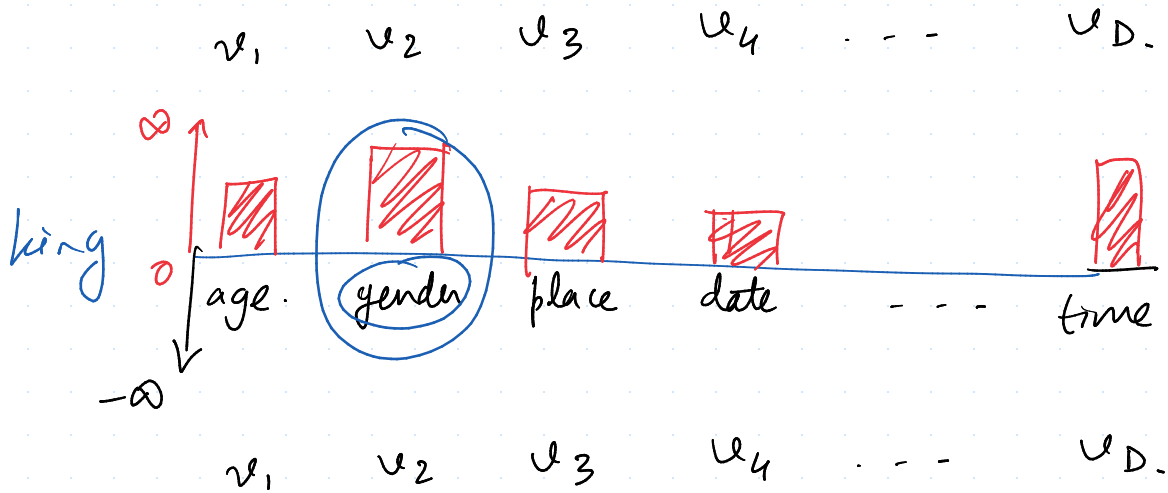 v₁ v₂ v₃ v₄ . - - v_D.
∞
king
0
age. gender place date - - - time
-∞
v₁ v₂ v₃ v₄ . - - v_D.